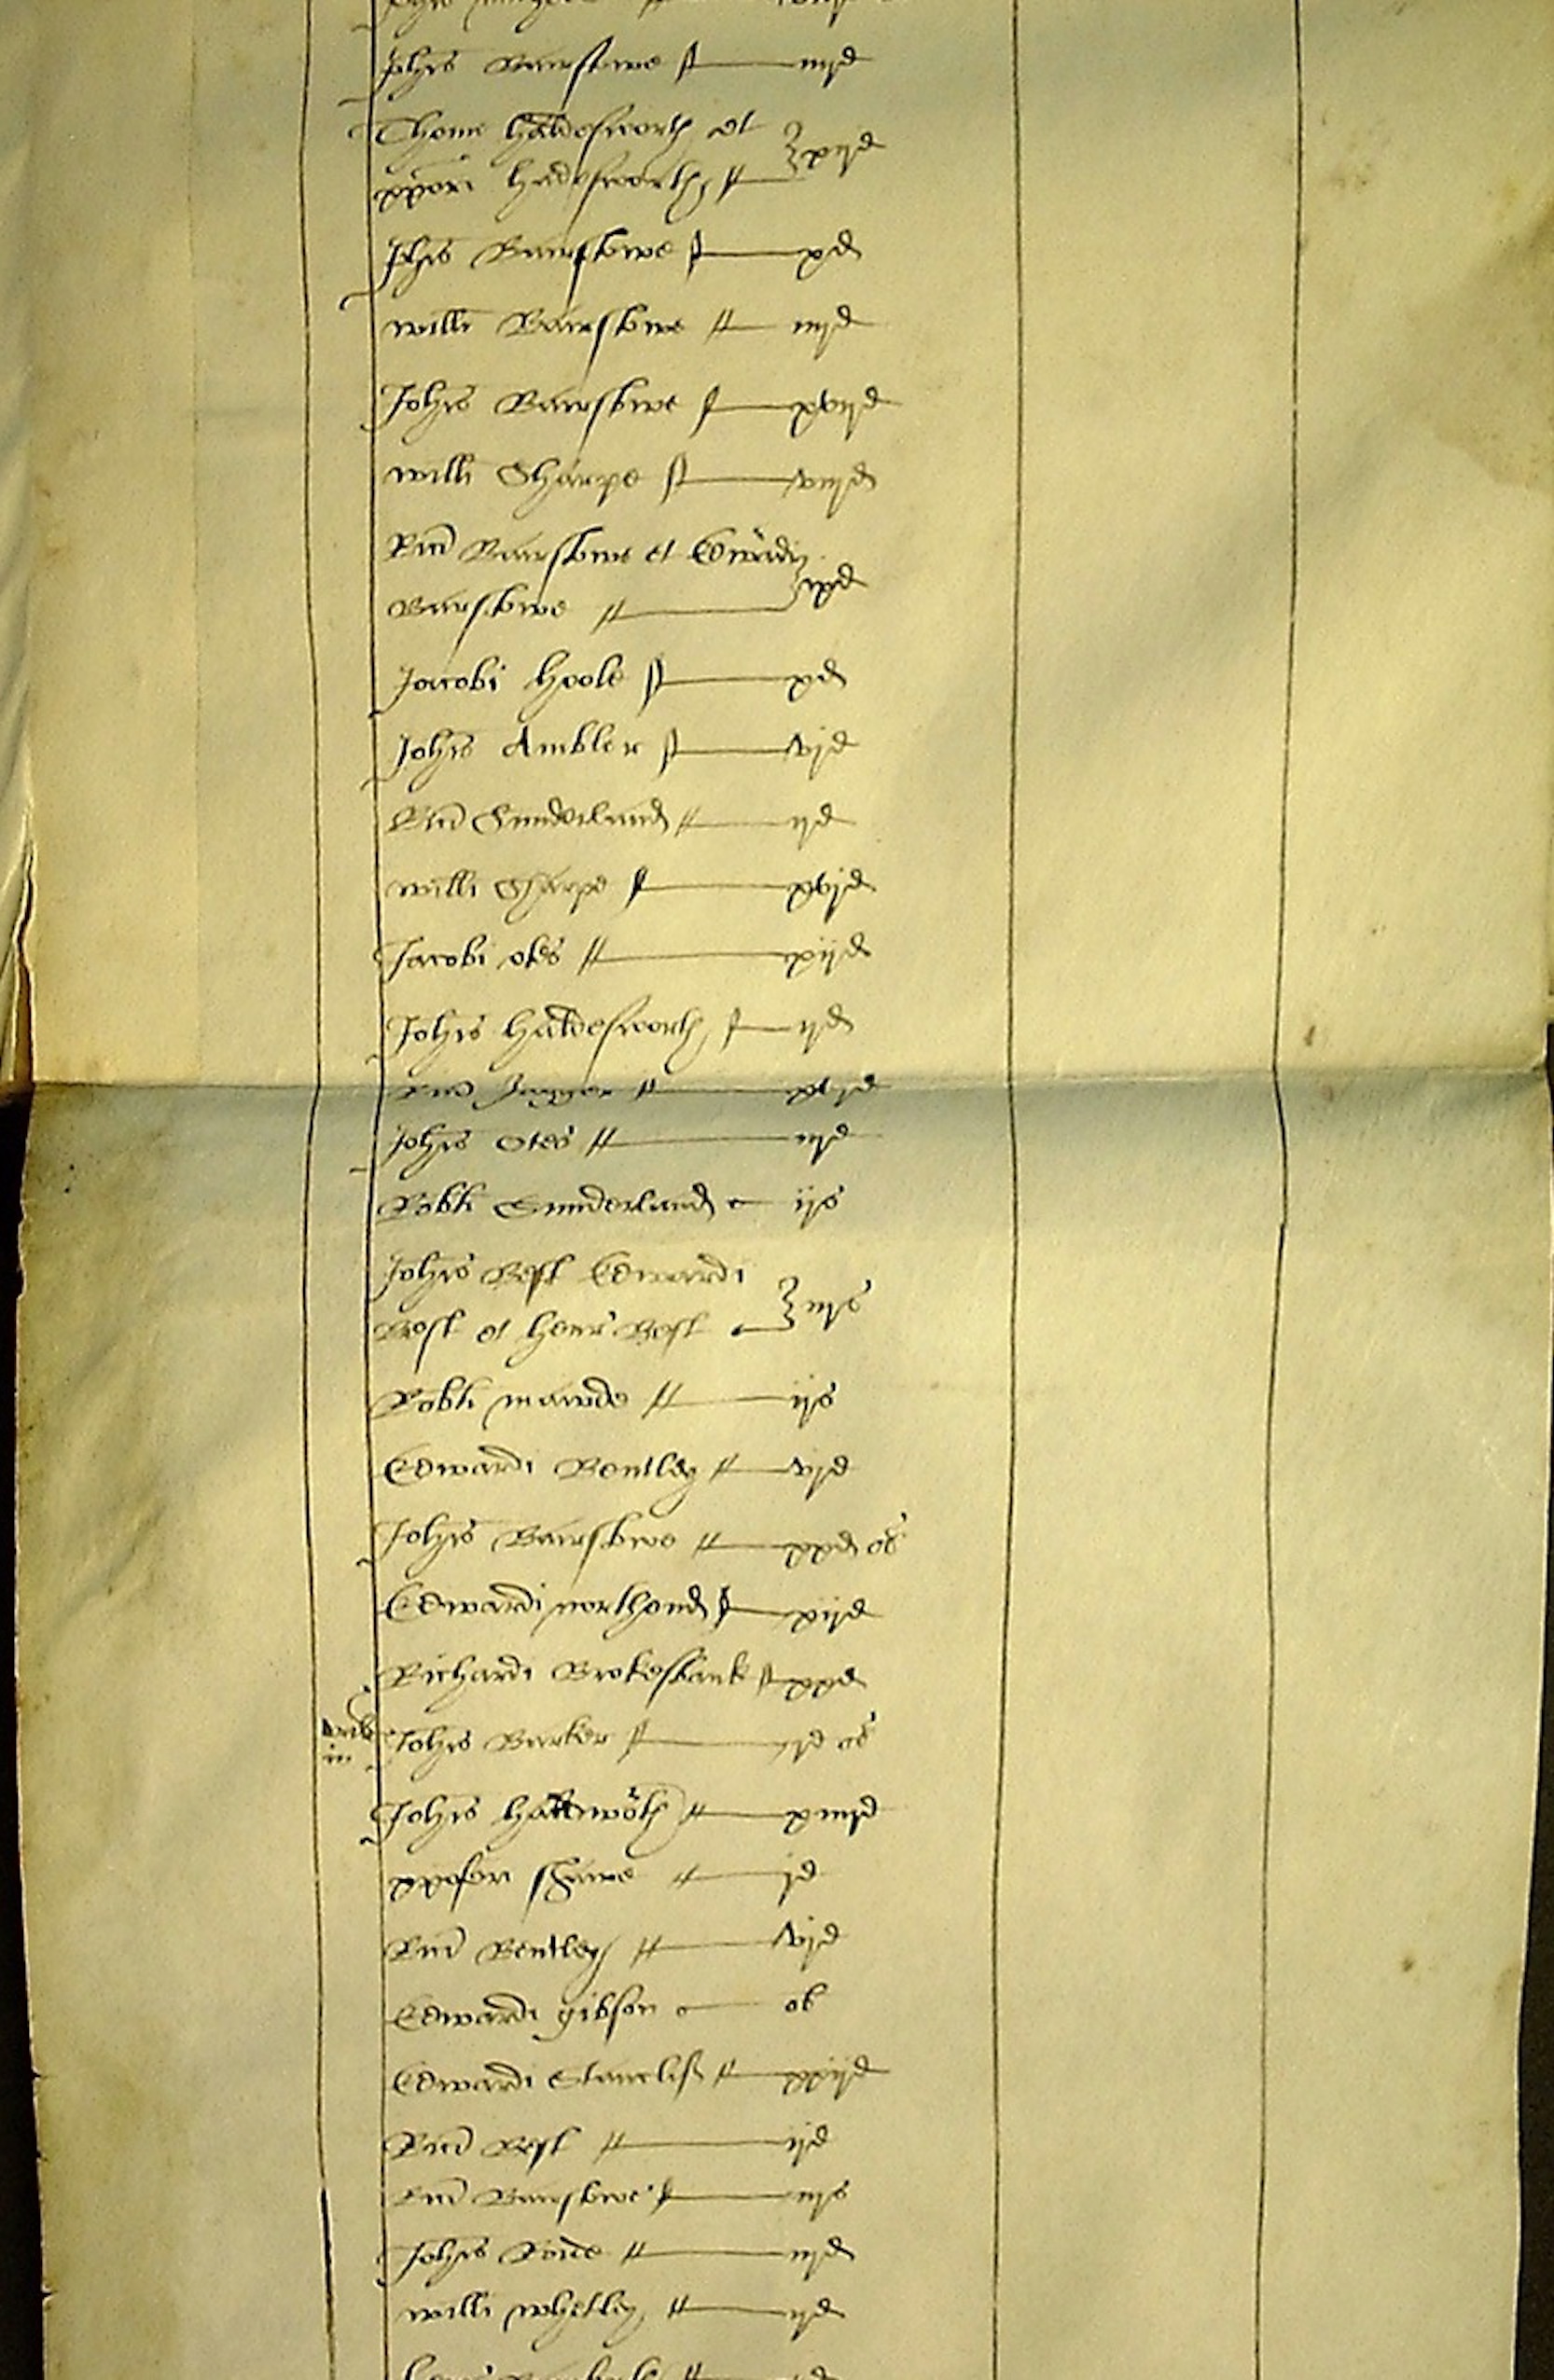 Johis Bairstowe iijd
Thome Haldesworth et
xpori Haldesworth xijd
Johis Bairstowe xd
Willi Bairstowe iijd
Johis Bairstowe xvijd
Willi Sharpe viijd
Ricd Bairstowe et Edwardi
Bairstowe
Jacobi Hoole xd
Johis Ambler vjd
Ricd Sunderland ijd
Willi Sharpe xvjd
Jacobi otes xijd
Johis Haldesworth ijd
Ricd Jagger xvjd
Johis Otes iijd
Robti Sunderland ijs
Johis Best Edwardi
Best et Henr Best iijs
Robti mawde ijs
Edwardi Bentley vjd
Johis Bairstowe xxd ob
Edwardi northend xijd
Richardi Brokesbank xxd
Johis Barker jd ob
Johis xiiijd
xpofori shawe jd
Ricd Bentley vjd
Edwardi gibson ob
Edwardi Stancliff xxijd
Ricd Best ijd
Ricd Bairstowe iijs
Johis iijd
Willi Whetley ijd